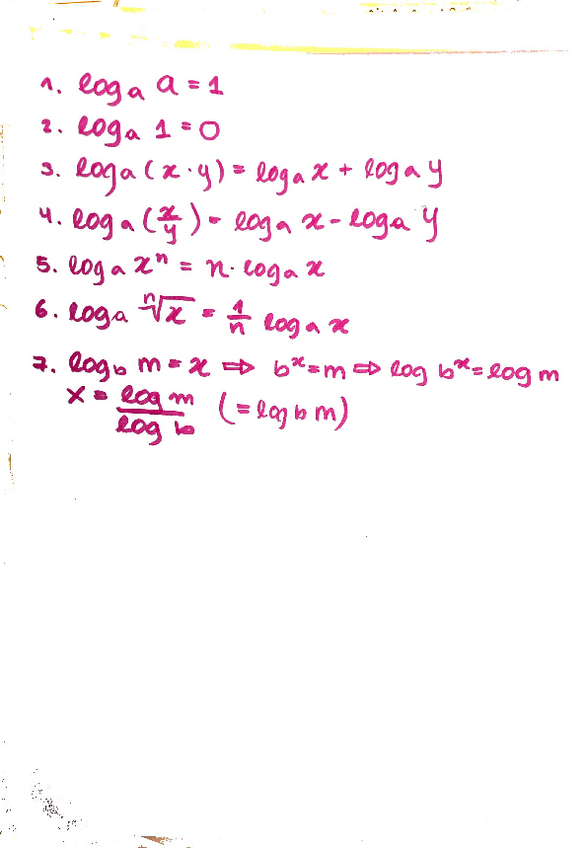 1. logₐ a = 1
2. logₐ 1 = 0
3. logₐ (x · y) = logₐ x + logₐ y
4. logₐ (x/y) = logₐ x - logₐ y
5. logₐ xⁿ = n · logₐ x
6. logₐ ⁿ√x = 1/n logₐ x
7. log_b m = x ⇒ bˣ = m ⇒ log bˣ = log m
x = log m / log b (= log_b m)